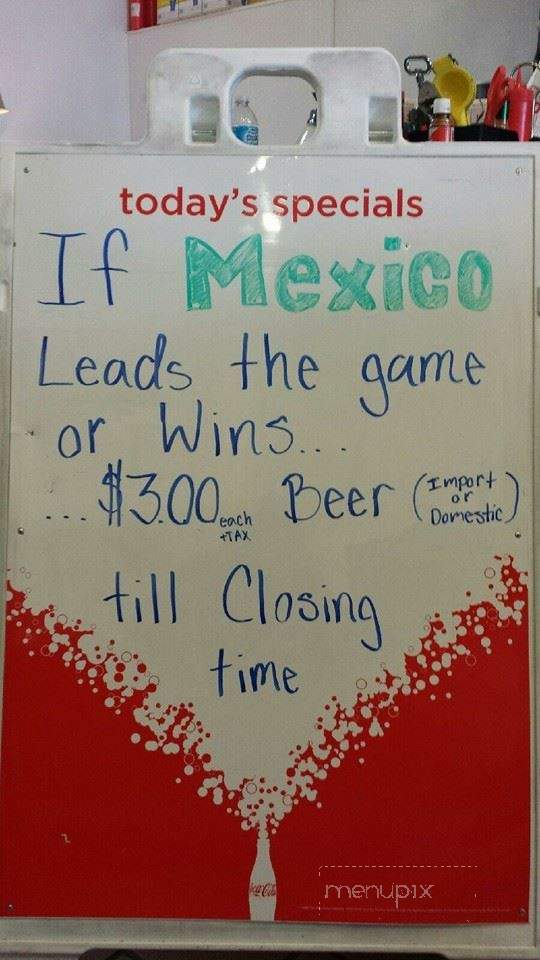 today's specials
If Mexico
Leads the game
or Wins...
...$3.00 each +TAX Beer (Import or Domestic)
till Closing
time
Coca-Cola
menupix